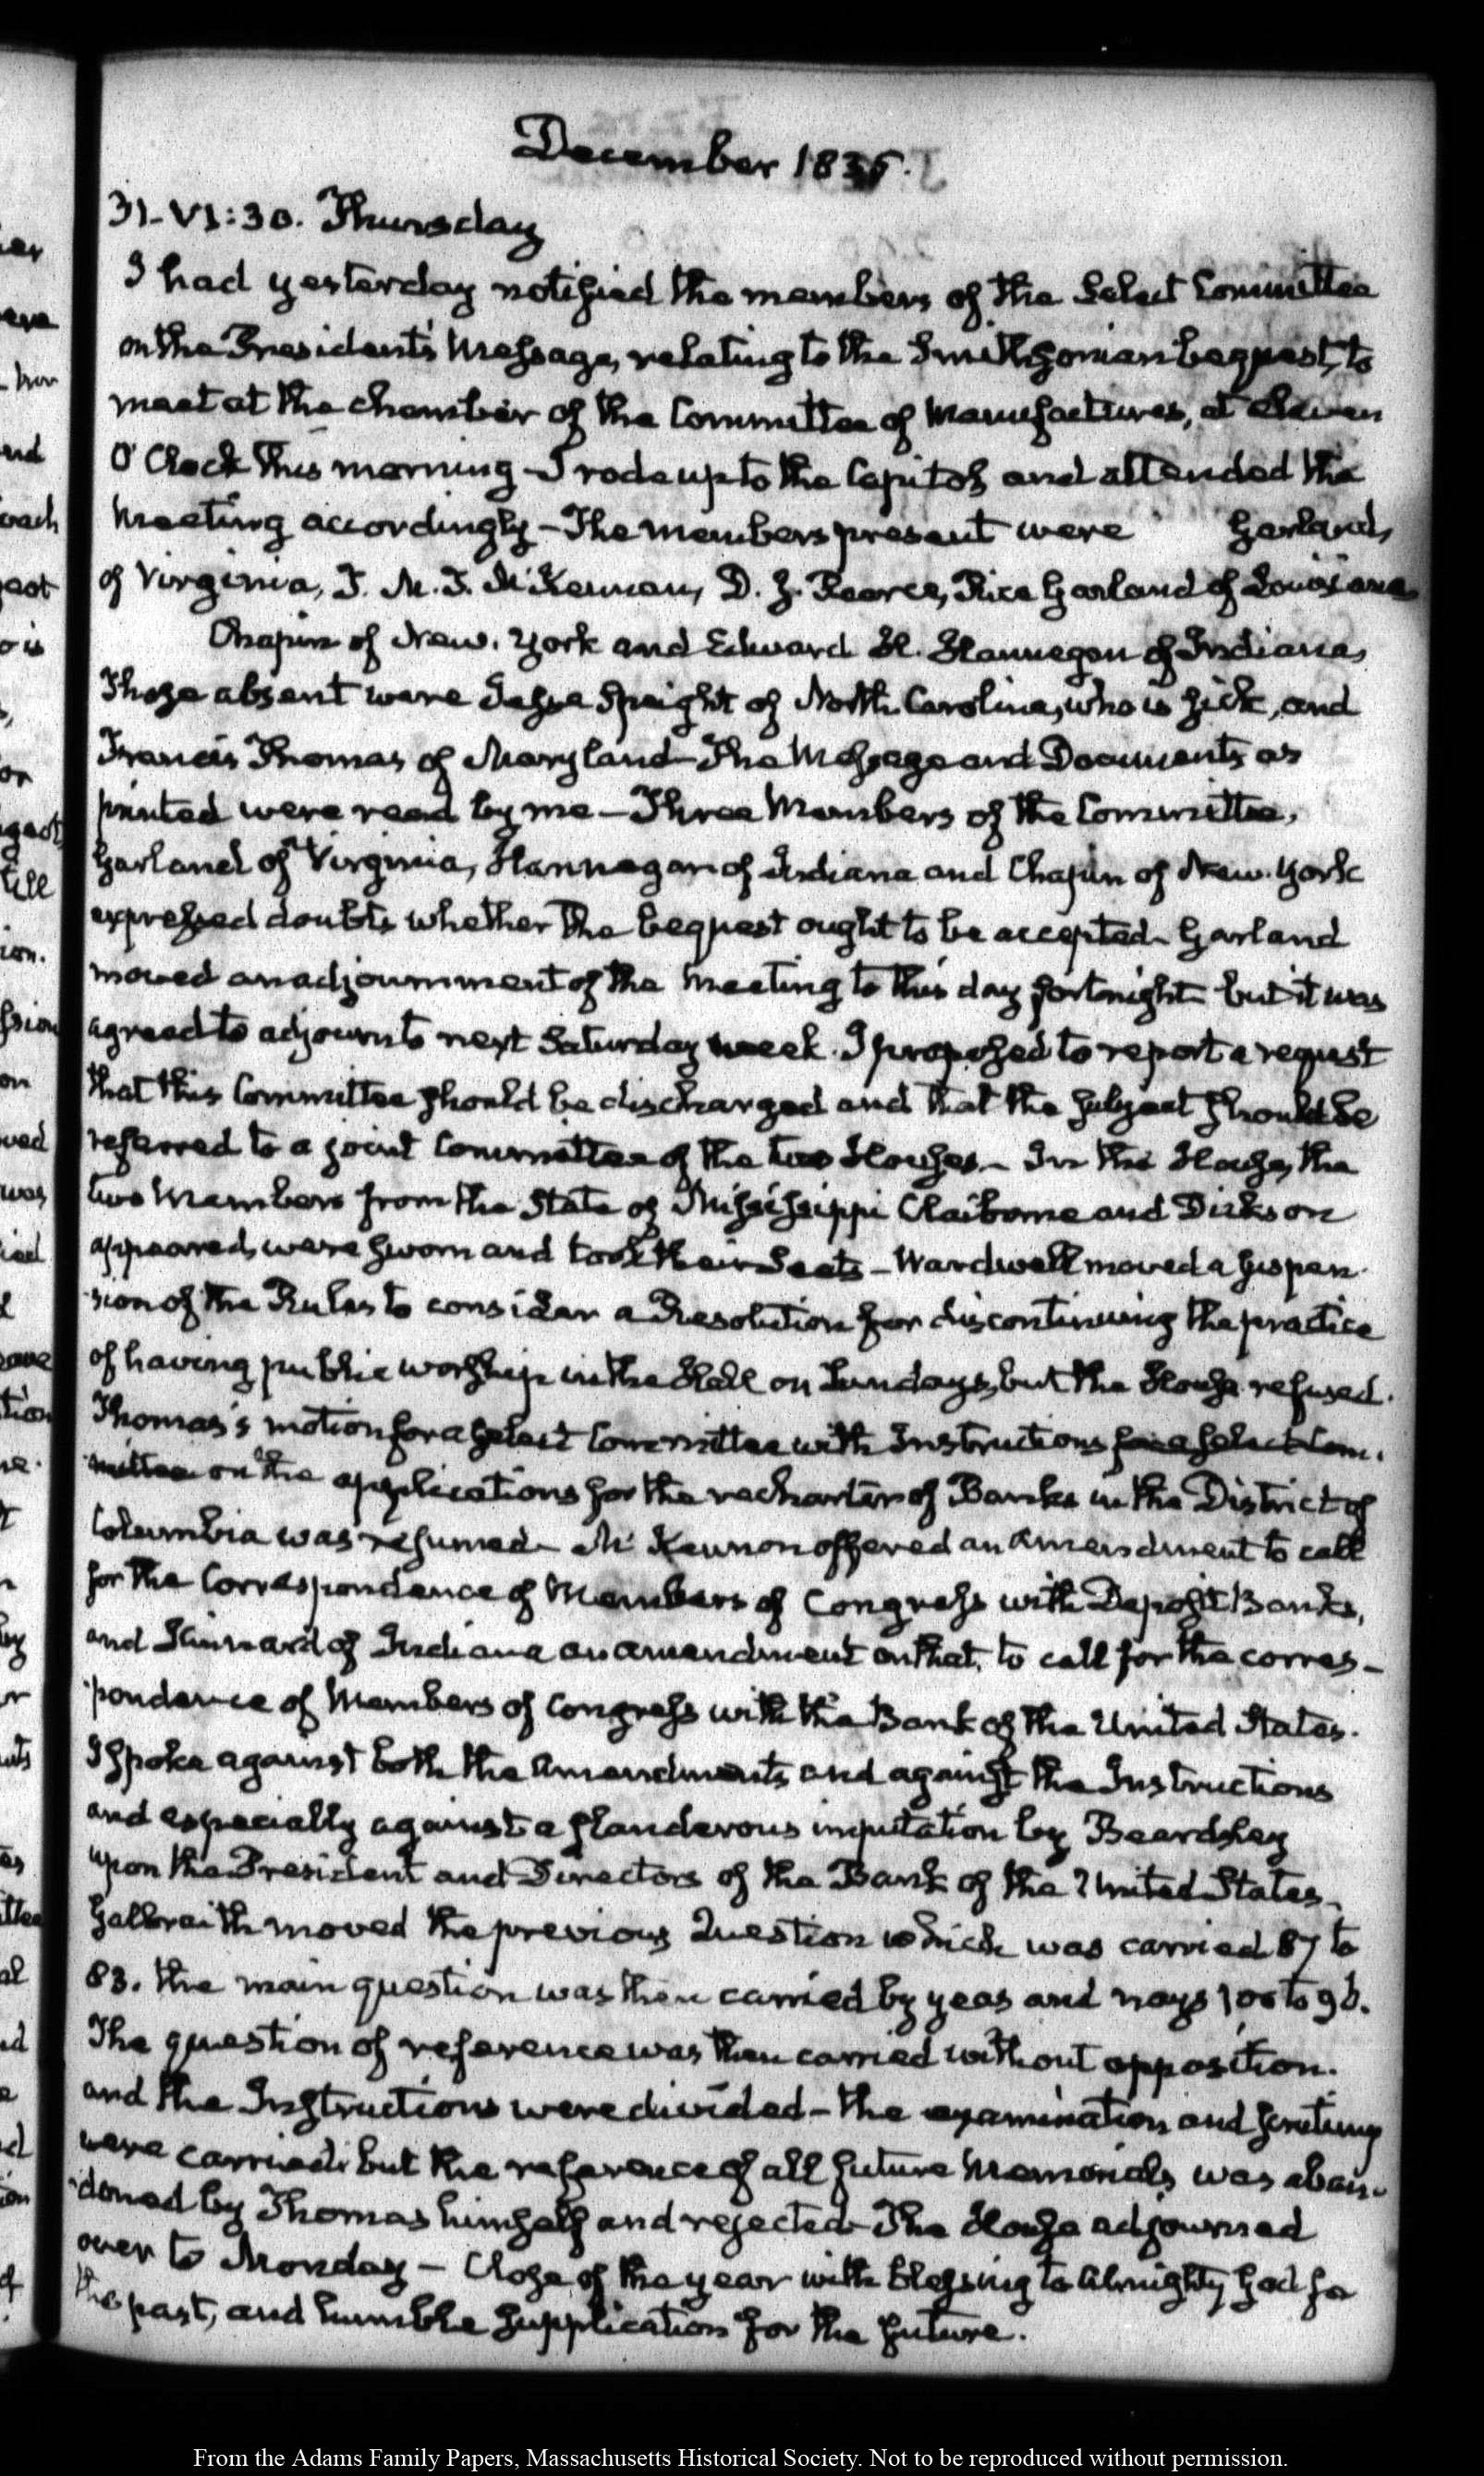 December 1835.
31. VI:30. Thursday
I had yesterday notified the members of the Select Committee
on the President's Message, relating to the Smithsonian bequest, to
meet at the chamber of the Committee of Manufactures, at eleven
O'Clock this morning – I rode up to the Capitol and attended the
meeting accordingly – The members present were Garland,
of Virginia, T. M. T. McKennan, D. J. Pearce, Rice Garland of Louisiana
Chapin of New. York and Edward A. Hannegan of Indiana,
Those absent were Jesse Speight of North Carolina, who is sick, and
Francis Thomas of Maryland – The Message and Documents as
printed were read by me – Three Members of the Committee,
Garland of Virginia, Hannegan of Indiana and Chapin of New. York
expressed doubts whether the bequest ought to be accepted – Garland
moved an adjournment of the meeting to this day fortnight – but it was
agreed to adjourn to next Saturday week. I proposed to report a request
that this Committee should be discharged and that the subject should be
referred to a joint Committee of the two Houses – In the House, the
two Members from the State of Mississippi Claiborne and Dickson
appeared, were sworn and took their Seats – Wardwell moved a suspen-
sion of the Rules to consider a Resolution for discontinuing the practice
of having public worship in the Hall on Sundays, but the House refused.
Thomas's motion for a select Committee with Instructions for a select Com-
mittee on the applications for the recharter of Banks in the District of
Columbia was resumed – McKennon offered an amendment to call
for the Correspondence of Members of Congress with Deposit Banks,
and Kinnard of Indiana an amendment on that, to call for the corres-
pondence of Members of Congress with the Bank of the United States.
I spoke against both the amendments and against the Instructions
and especially against a slanderous imputation by Beardsley
upon the President and Directors of the Bank of the United States –
Galbraith moved the previous Question which was carried 87 to
83. the main question was then carried by yeas and nays 106 to 96.
The question of reference was then carried without opposition.
and the Instructions were divided – the examination and scrutiny
were carried: but the reference of all future Memorials was aban-
doned by Thomas himself and rejected – The House adjourned
over to Monday – Close of the year with blessing to Almighty God for
the past, and humble supplication for the future.
From the Adams Family Papers, Massachusetts Historical Society. Not to be reproduced without permission.